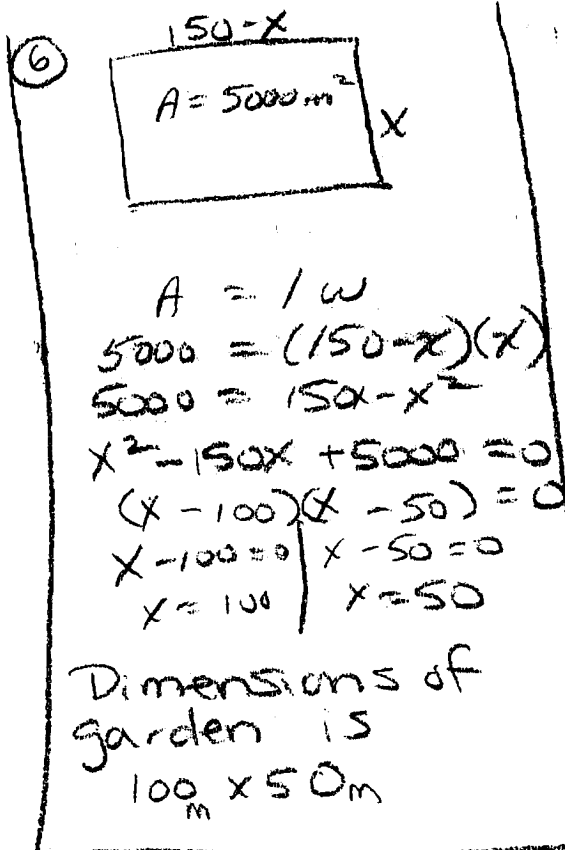 6
150-x
A = 5000 m²
x
A = lw
5000 = (150-x)(x)
5000 = 150x-x²
x²-150x +5000 = 0
(x - 100)(x - 50) = 0
x-100=0 | x-50=0
x = 100 | x = 50
Dimensions of
garden is
100m x 50m